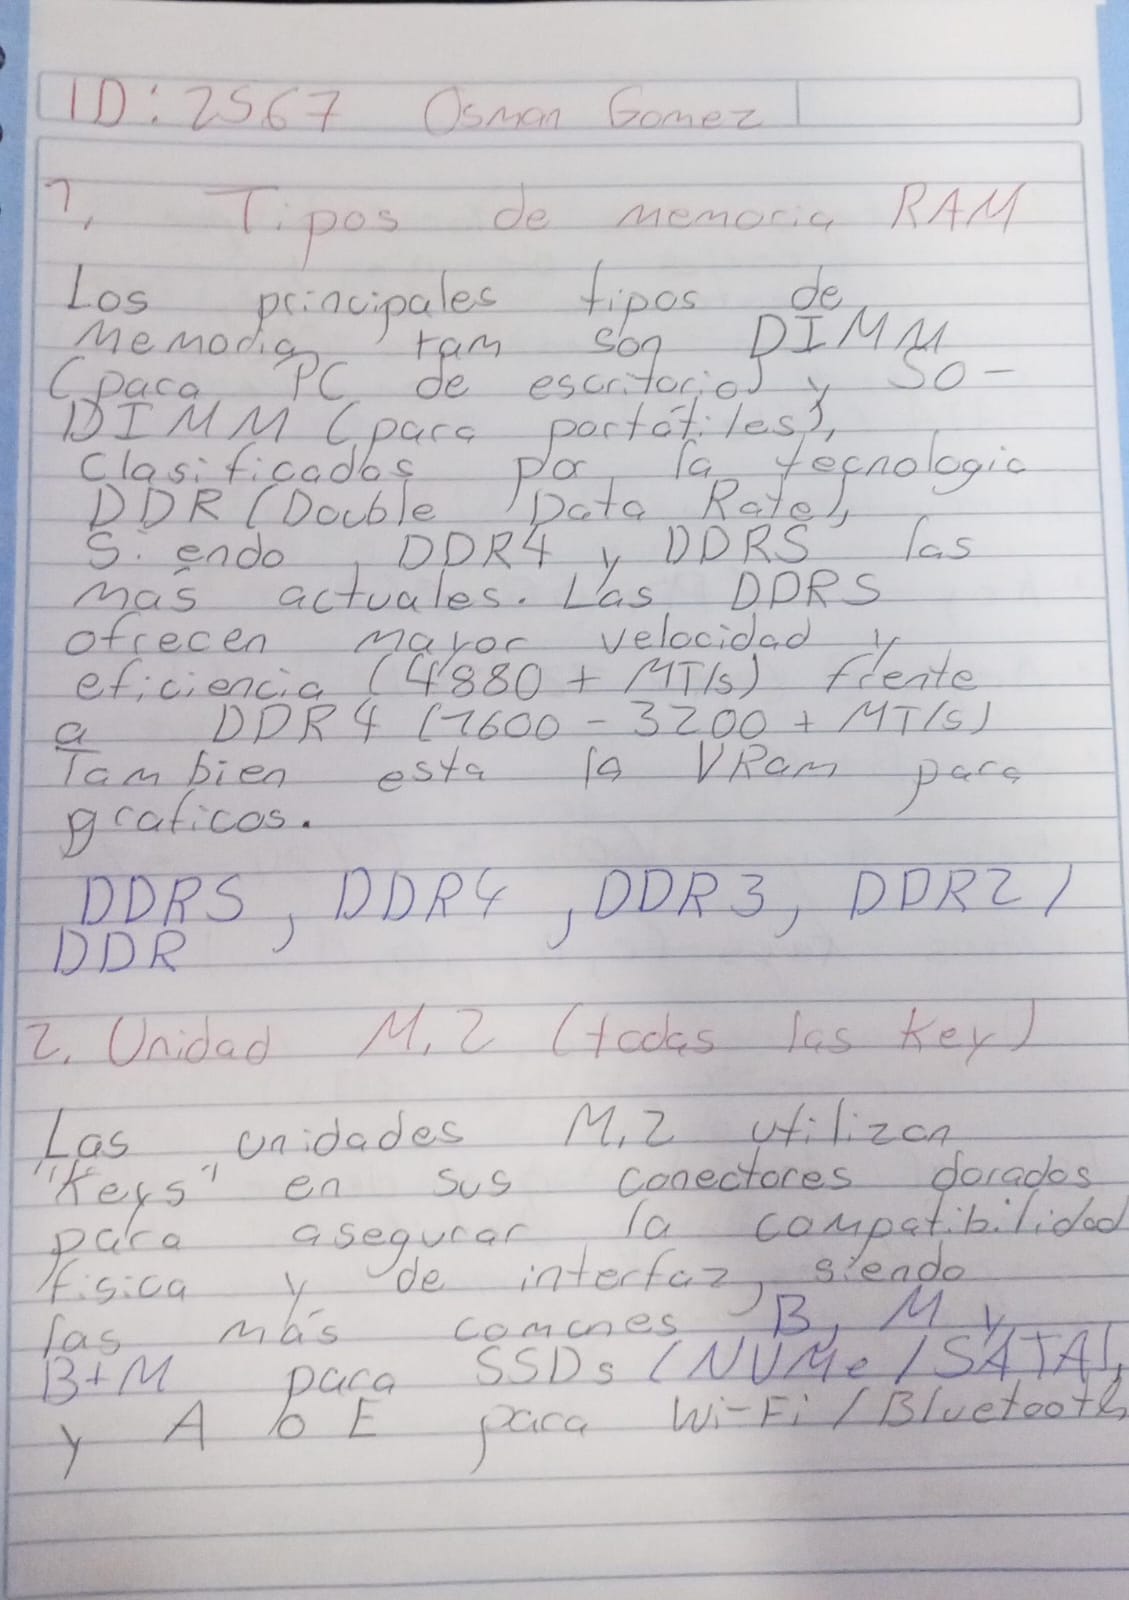 ID: 2567 Osman Gomez
1. Tipos de memoria RAM
Los principales tipos de
Memoria ram son DIMM
(para PC de escritorio) y SO-
DIMM (para portátiles),
Clasificados por la tecnologia
DDR (Double Data Rate),
Siendo, DDR4 y DDR5 las
mas actuales. Las DDR5
ofrecen mayor velocidad y
eficiencia (4880 + MT/s) frente
a DDR4 (1600 - 3200 + MT/s)
Tambien esta la VRam para
graficos.
DDR5, DDR4, DDR3, DDR2,
DDR
2. Unidad M.2 (todas las Key)
Las unidades M.2 utilizan
"Keys" en sus conectores dorados
para asegurar la compatibilidad
fisica y de interfaz, siendo
las más comunes B, M y
B+M para SSDs (NVMe/SATA),
y A o E para Wi-Fi/Bluetooth